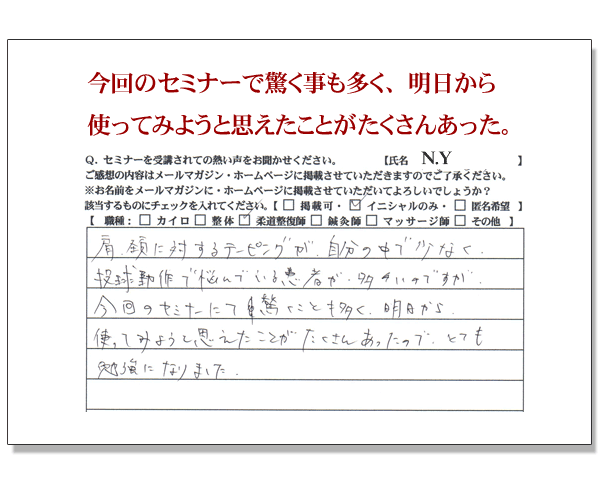 今回のセミナーで驚く事も多く、明日から
使ってみようと思えたことがたくさんあった。
Q. セミナーを受講されての熱い声をお聞かせください。 【氏名 N.Y 】
ご感想の内容はメールマガジン・ホームページに掲載させていただきますのでご了承ください。
※お名前をメールマガジンに・ホームページに掲載させていただいてよろしいでしょうか？
該当するものにチェックを入れてください。【 □ 掲載可・ ☑ イニシャルのみ・ □ 匿名希望 】
【 職種： □ カイロ □ 整体 ☑ 柔道整復師 □ 鍼灸師 □ マッサージ師 □ その他 】
肩、頚に対するテーピングが、自分の中で少なく、
投球動作で悩んでいる患者が、多いのですが、
今回のセミナーにて驚くことも多く、明日から、
使ってみようと思えたことがたくさんあったので、とても
勉強になりました。